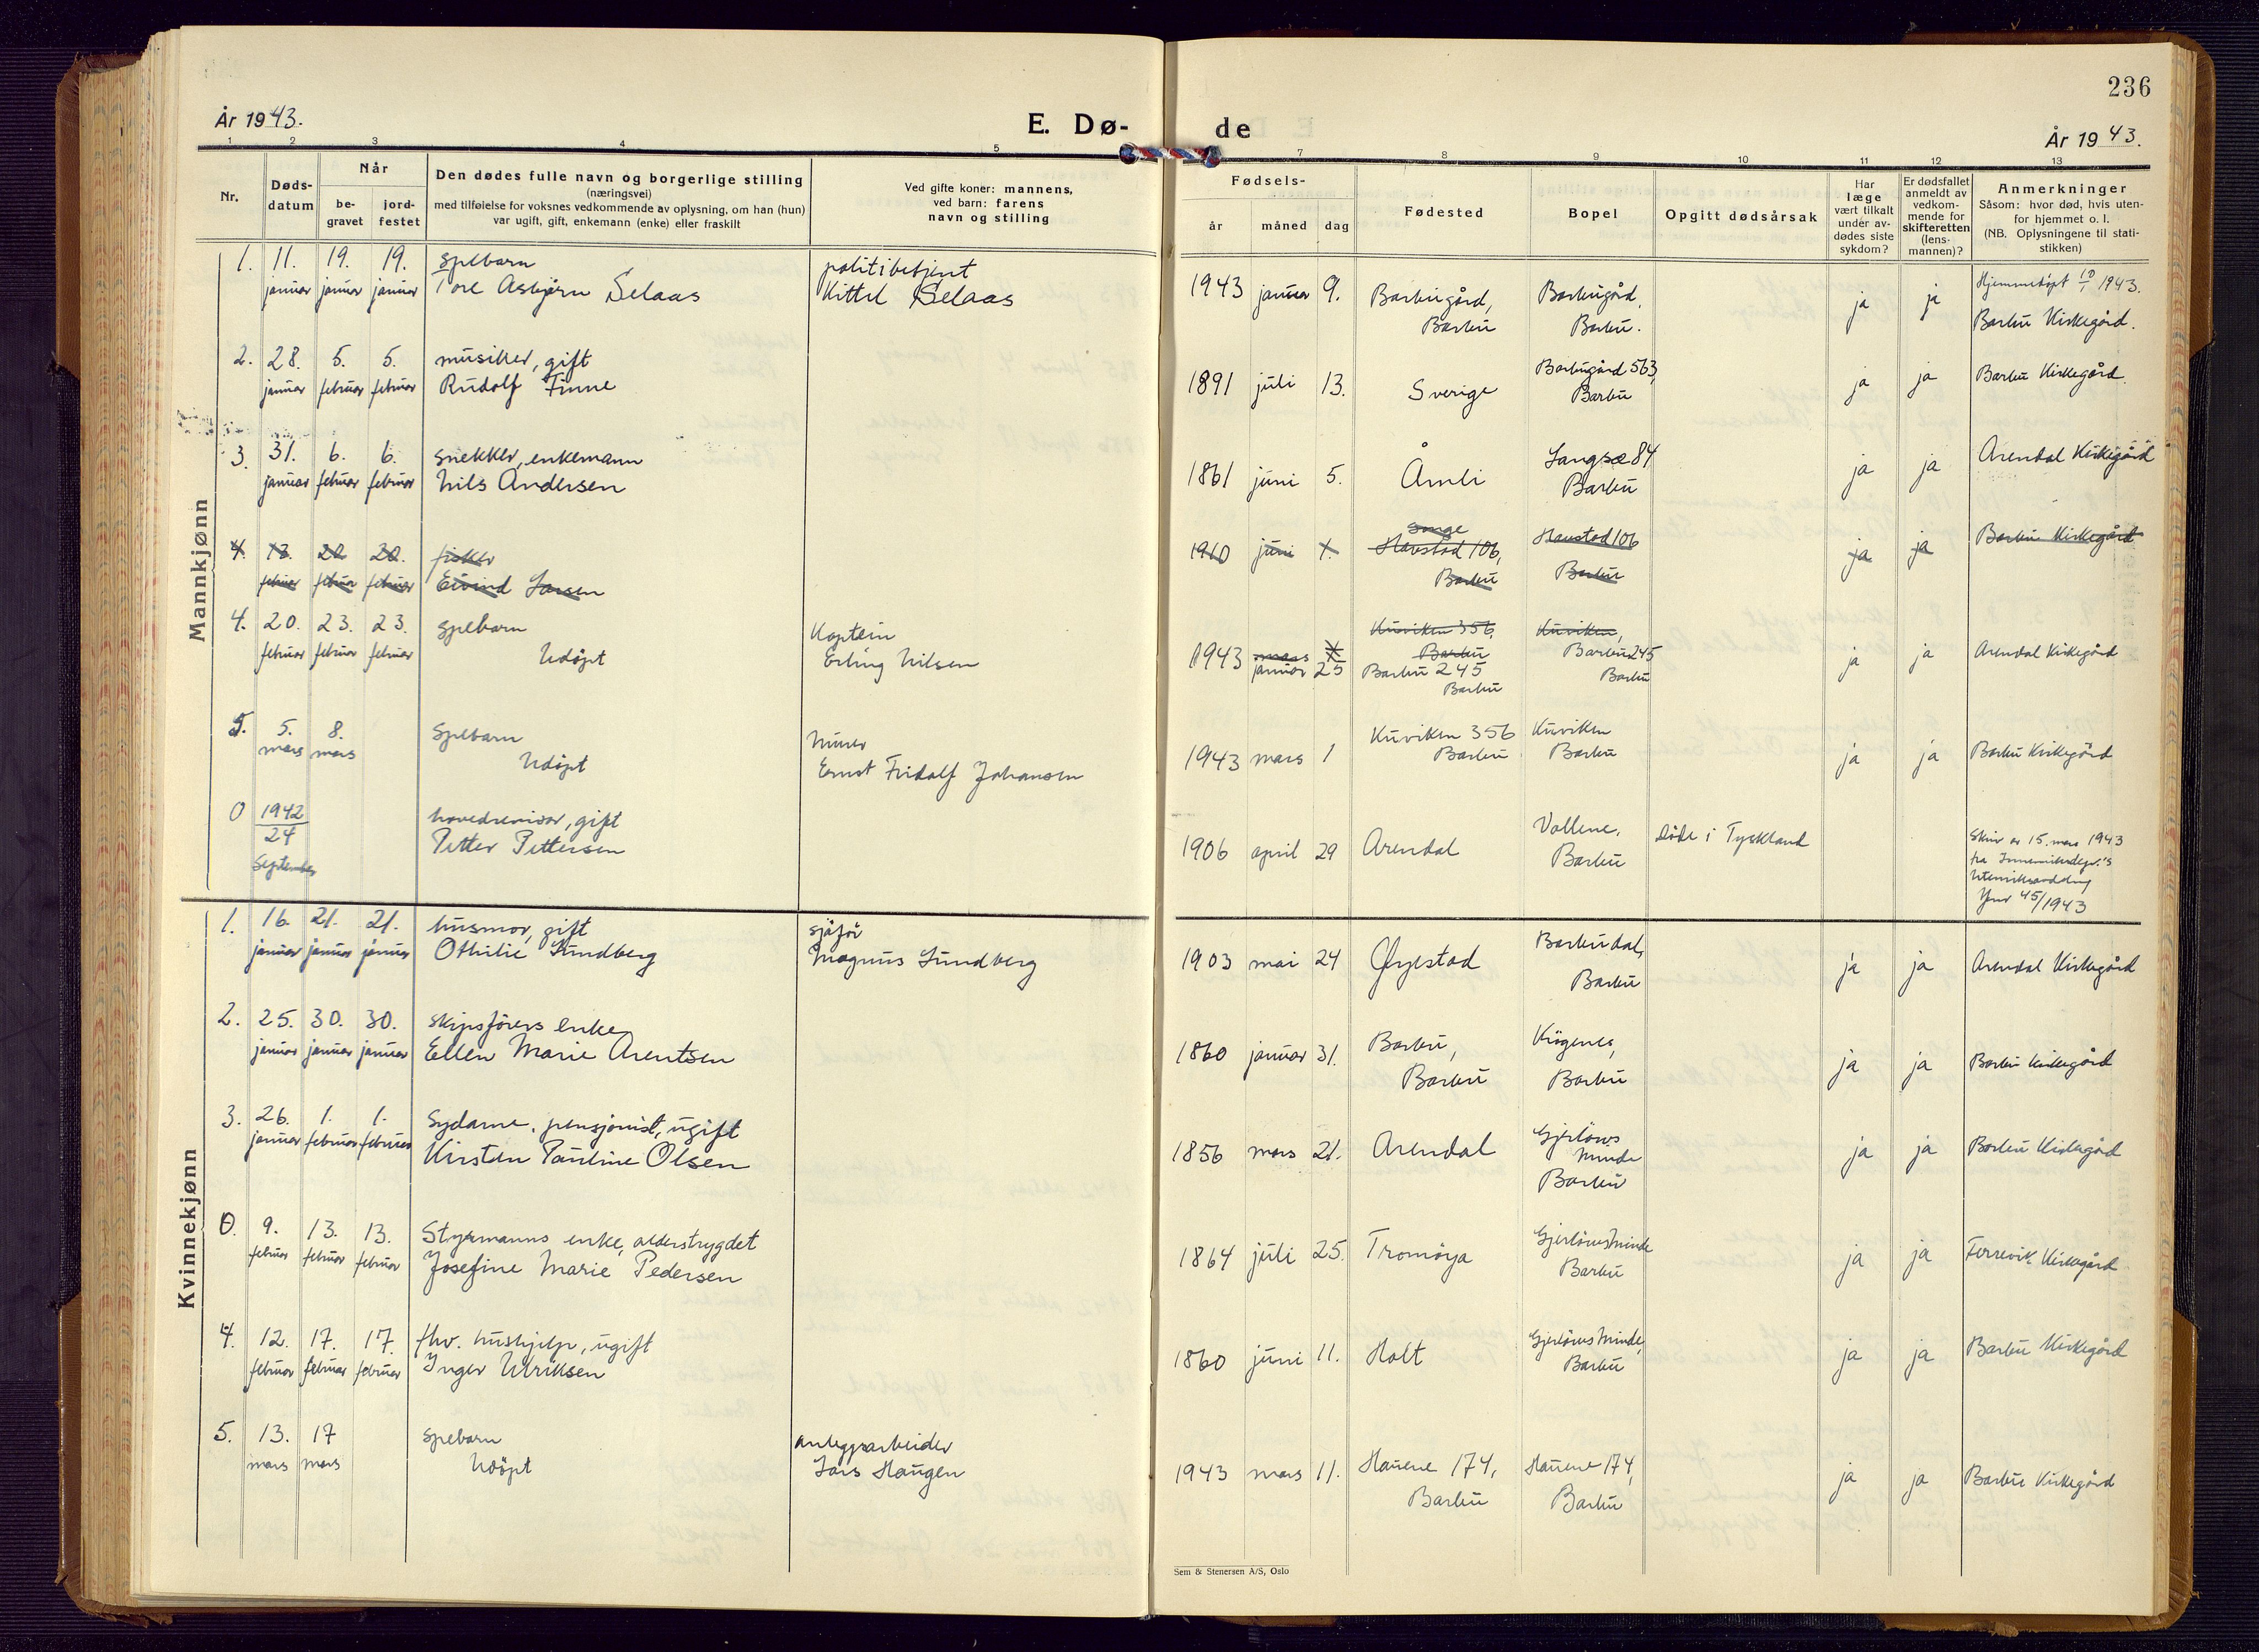 236
År 1943.
E. Dø-
de
År 1943.
1 2 3 4 5 7 8 9 10 11 12 13
Nr.
Døds-
datum
Når
be-
gravet
jord-
festet
Den dødes fulle navn og borgerlige stilling
(næringsvei)
med tilføielse for voksnes vedkommende av oplysning, om han (hun)
var ugift, gift, enkemann (enke) eller fraskilt
Ved gifte koner: mannens,
ved barn: farens
navn og stilling
Fødsels-
år måned dag
Fødested
Bopel
Opgitt dødsårsak
Har
læge
vært tilkalt
under av-
dødes siste
sykdom?
Er dødsfallet
anmeldt av
vedkom-
mende for
skifteretten
(lens-
mannen)?
Anmerkninger
Såsom: hvor død, hvis uten-
for hjemmet o. l.
(NB. Oplysningene til stati-
stikken)
Mannkjønn
1. 11. 19. 19. spebarn politibetjent 1943 januar 9. Barbugård, Barbugård, ja ja Hjemmedøpt 10/1 1943.
januar januar januar Tore Asbjørn Selaas Kittil Selaas Barbu Barbu. Barbu Kirkegård.
2. 28. 5. 5. musiker, gift 1891 juli 13. Sverige Barbugård 563, ja ja Barbu Kirkegård.
januar februar februar Rudolf Finne Barbu
3. 31. 6. 6. snekker, enkemann 1861 juni 5. Åmli Langsæ 84 ja ja Arendal Kirkegård
januar februar februar Nils Andersen Barbu
4. 13. 20. 20. fisker 1910 juni 1. Songe Havstad 106, Havstad 106 ja ja Barbu Kirkegård
februar februar februar Eivind Larsen Barbu Barbu
4. 20. 23. 23. spebarn Kaptein 1943 mars Kuviken 356, Kuviken, ja ja Arendal Kirkegård
februar februar februar Udøpt Erling Nilsen januar 25 Barbu Barbu 245
Barbu 245 Barbu
Barbu
5. 5. 8. spebarn murer 1943 mars 1 Kuviken 356 Kuviken ja ja Barbu Kirkegård
mars mars Udøpt Ernst Fridolf Johansen Barbu Barbu
0 1942 hovedrevisor, gift 1906 april 29 Arendal Vollene, døde i Tyskland Skriv av 15. mars 1943
24 Petter Pettersen Barbu fra Innenriksdep.'s
September
Jnr 45/1943
Kvinnekjønn
1. 16. 21. 21. husmor, gift sjåfør 1903 mai 24 Øyestad Barbudal, ja ja Arendal Kirkegård
januar januar januar Othilie Lundberg Magnus Lundberg Barbu
2. 25. 30. 30. skipsførers enke 1860 januar 31. Barbu, Krøgenes, ja ja Barbu Kirkegård
januar januar januar Ellen Marie Arentsen Barbu Barbu
3. 26. 1. 1. Sydame, pensjonist, ugift 1856 mars 21. Arendal Gjerløws ja ja Barbu Kirkegård
januar februar februar Kirsten Pauline Olsen Minde
Barbu
0. 9. 13. 13. Styrmanns enke, alderstrygdet 1864 juli 25. Tromøya Gjerløws Minde ja ja Færevik Kirkegård
februar februar februar Josefine Marie Pedersen Barbu
4. 12. 17. 17. fhv. hushjelp, ugift 1860 juni 11. Holt Gjerløws Minde, ja ja Barbu Kirkegård
februar februar februar Inger Ulriksen Barbu
5. 13. 17 spebarn anleggsarbeider 1943 mars 11. Hauene 174, Hauene 174, ja ja Barbu Kirkegård
mars mars Udøpt Lars Haugen Barbu Barbu
Sem & Stenersen A/S, Oslo